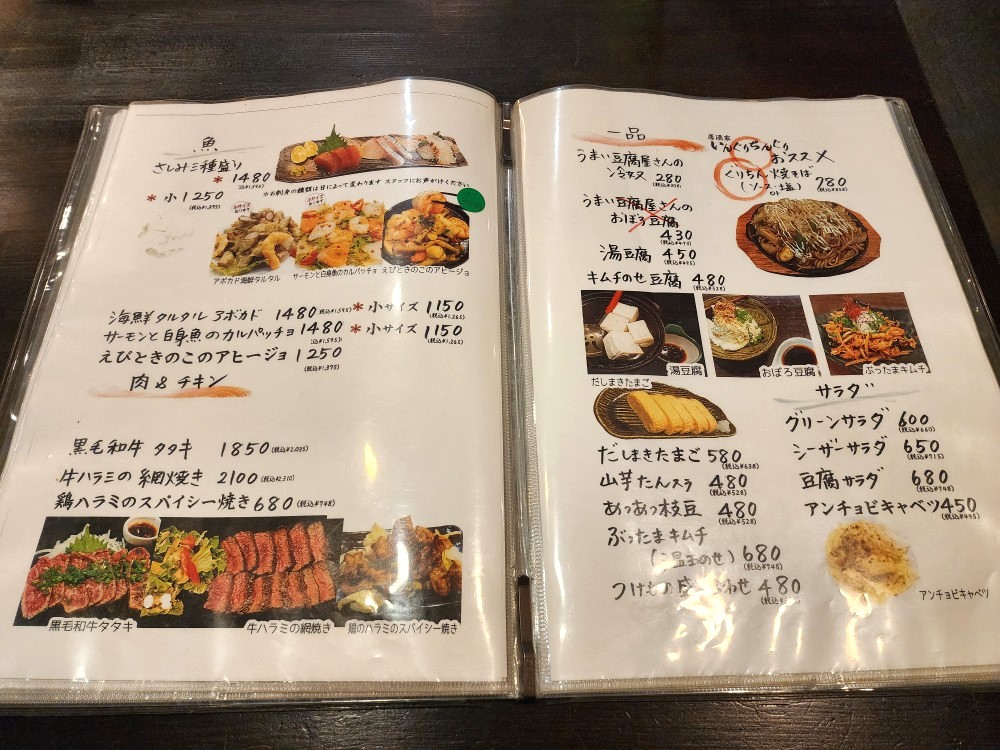 魚
さしみ三種盛り
* 1480
* 小1250
(税込¥1,375)
※お刺身の種類は日によって変わります スタッフにお声がけください
アボカド海鮮タルタル
サーモンと白身魚のカルパッチョ
えびときのこのアヒージョ
海鮮タルタルアボカド 1480 (税込¥1,595) * 小サイズ 1150
(税込¥1,265)
サーモンと白身魚のカルパッチョ 1480 * 小サイズ 1150
(税込¥1,265)
えびときのこのアヒージョ 1250
(税込¥1,375)
肉&チキン
黒毛和牛タタキ 1850 (税込¥2,035)
牛ハラミの網焼き 2100 (税込¥2,310)
鶏ハラミのスパイシー焼き 680 (税込¥748)
黒毛和牛タタキ
牛ハラミの網焼き
鶏のハラミのスパイシー焼き
一品
うまい豆腐屋さんの
冷奴 280
うまい豆腐屋さんの
おぼろ豆腐
430
(税込¥473)
湯豆腐 450
(税込¥495)
キムチのせ豆腐 480
(税込¥528)
居酒家
おススメ
くりちん焼そば
(ソース・塩)
780
湯豆腐
おぼろ豆腐
ぶったまキムチ
だしまきたまご
だしまきたまご 580
(税込¥638)
山芋たんスラ 480
(税込¥528)
あつあつ枝豆 480
(税込¥528)
ぶったまキムチ
(温玉のせ) 680
(税込¥748)
つけもの盛 わせ 480
サラダ
グリーンサラダ 600
(税込¥660)
シーザーサラダ 650
(税込¥715)
豆腐サラダ 680
(税込¥748)
アンチョビキャベツ 450
(税込¥495)
アンチョビキャベツ